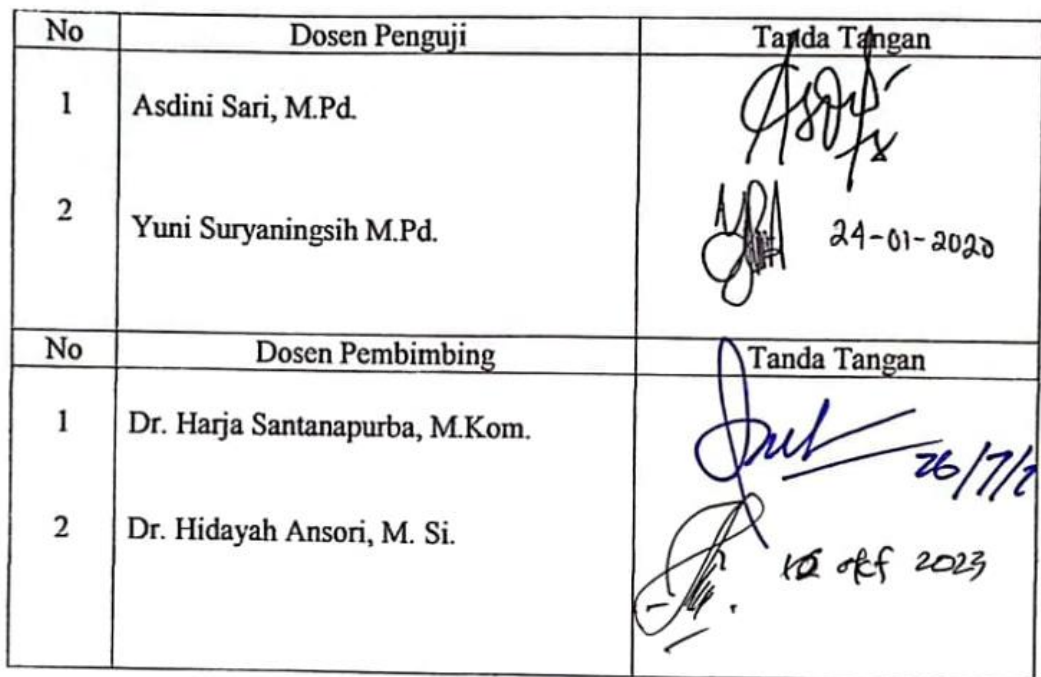 No Dosen Penguji Tanda Tangan
1 Asdini Sari, M.Pd.
2 Yuni Suryaningsih M.Pd.
24-01-2020
No Dosen Pembimbing Tanda Tangan
1 Dr. Harja Santanapurba, M.Kom.
26/7/
2 Dr. Hidayah Ansori, M. Si.
okt 2023